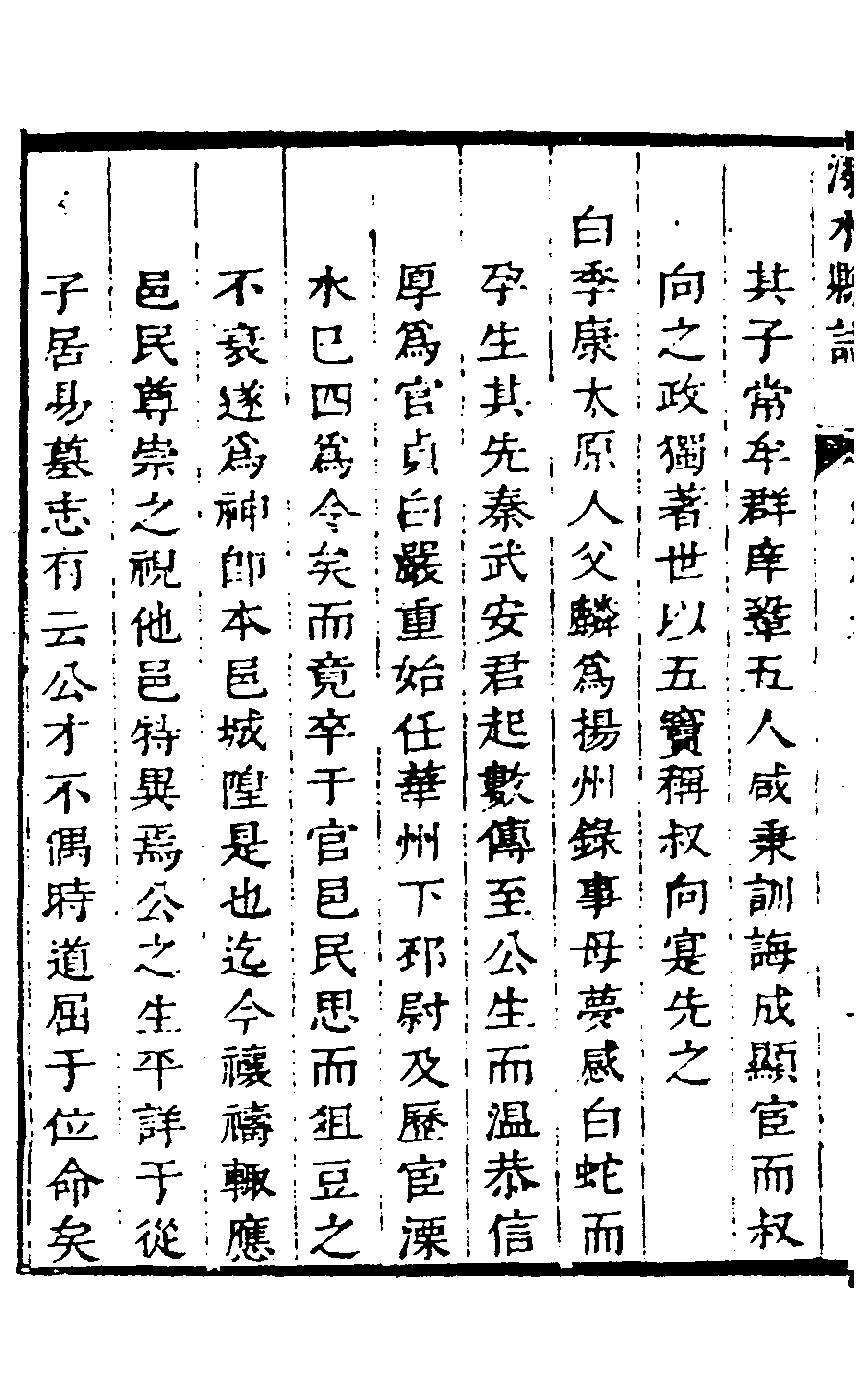 溧水縣誌
其子常牟群庠鞏五人咸秉訓誨成顯宦而叔
向之政獨著世以五竇稱叔向寔先之
白季康太原人父麟爲揚州錄事母夢感白蛇而
孕生其先秦武安君起數傳至公生而温恭信
厚爲官貞白嚴重始任華州下邳尉及歷宦溧
水巳四爲令矣而竟卒于官邑民思而俎豆之
不衰遂爲神卽本邑城隍是也迄今禳禱輙應
邑民尊崇之視他邑特異焉公之生平詳于從
子居易墓志有云公才不偶時道屈于位命矣